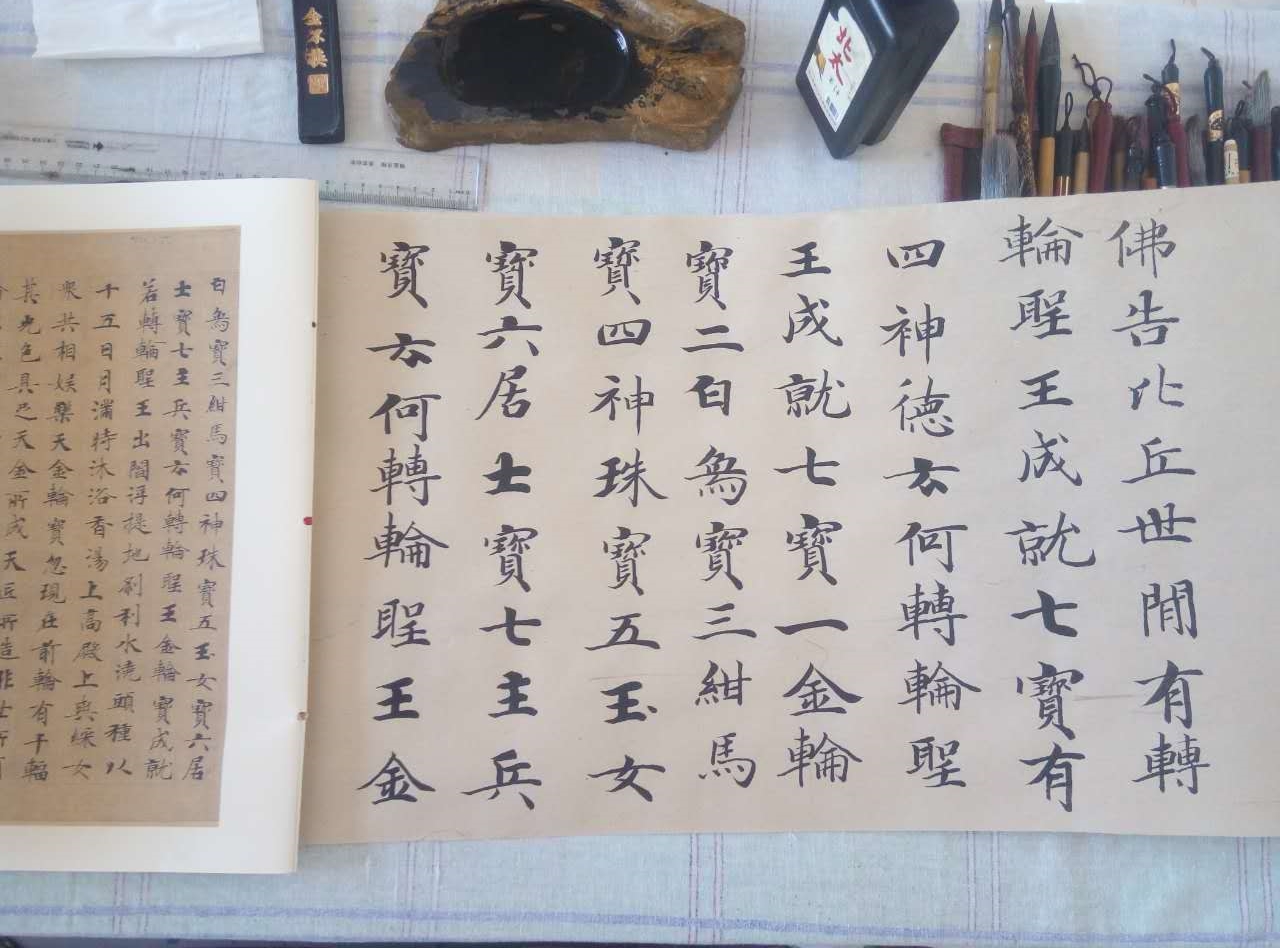 佛告比丘世間有轉
輪聖王成就七寶有
四神德云何轉輪聖
王成就七寶一金輪
寶二白烏寶三紺馬
寶四神珠寶五玉女
寶六居士寶七主兵
寶云何轉輪聖王金
白烏寶三紺馬寶四神珠寶五玉女寶六居
士寶七主兵寶云何轉輪聖王金輪寶成就
若轉輪聖王出閻浮提地剎利水澆頭種以
十五日月滿時沐浴香湯上高殿上與婇女
衆共相娛樂天金輪寶忽現在前輪有千輻
其光色具足天金所成天匠所造非
金不換
北大